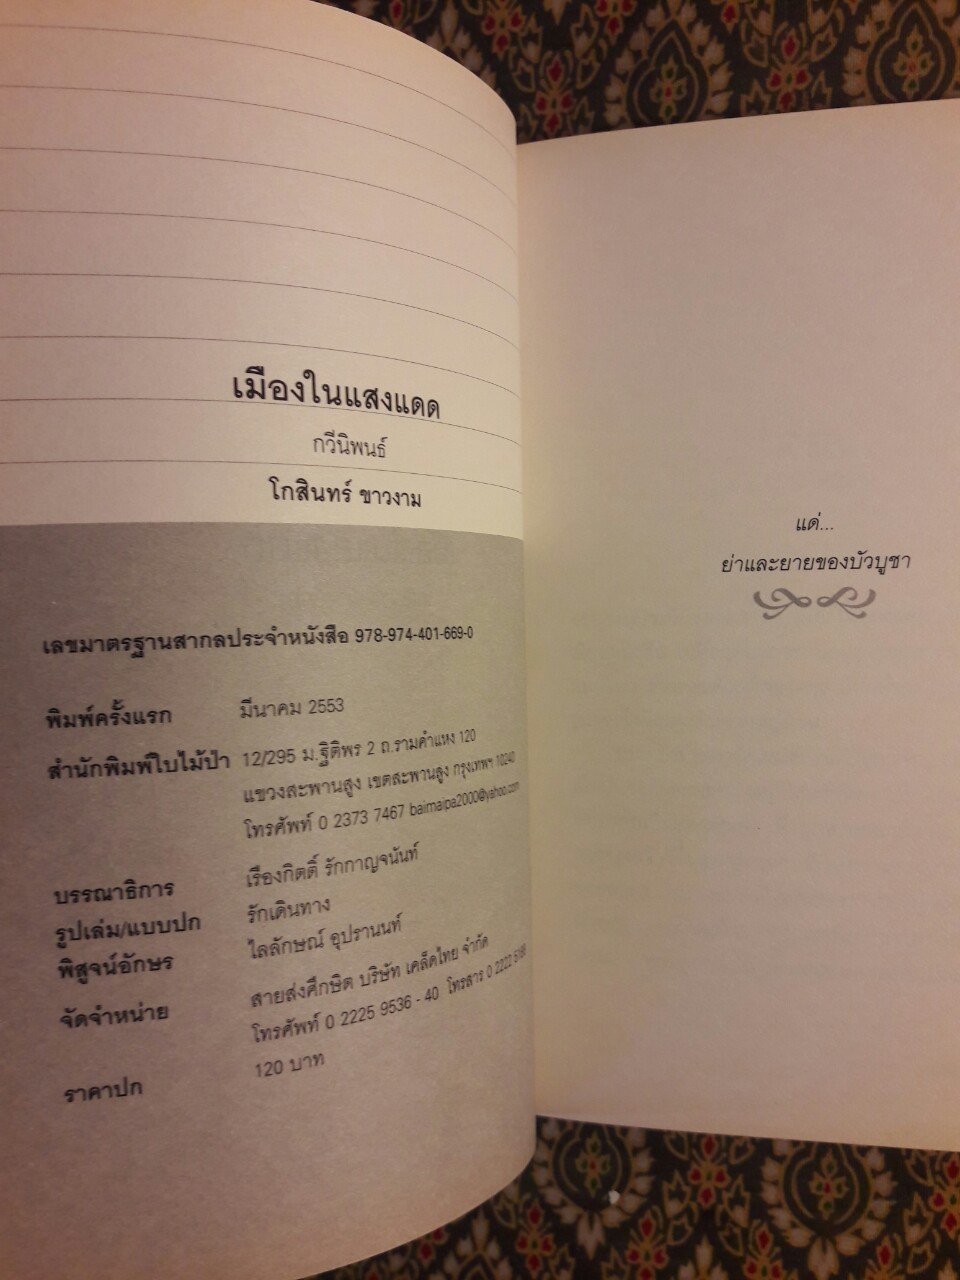 เมืองในแสงแดด
กวีนิพนธ์
โกสินทร์ ขาวงาม
เลขมาตรฐานสากลประจำหนังสือ 978-974-401-669-0
พิมพ์ครั้งแรก มีนาคม 2553
สำนักพิมพ์ใบไม้ป่า 12/295 ม.ฐิติพร 2 ถ.รามคำแหง 120
แขวงสะพานสูง เขตสะพานสูง กรุงเทพฯ 10240
โทรศัพท์ 0 2373 7467 baimaipa2000@yahoo.com
บรรณาธิการ เรืองกิตติ์ รักกาญจนันท์
รูปเล่ม/แบบปก รักเดินทาง
พิสูจน์อักษร ไลลักษณ์ อุปรานนท์
จัดจำหน่าย สายส่งศึกษิต บริษัท เคล็ดไทย จำกัด
โทรศัพท์ 0 2225 9536 - 40 โทรสาร 0 2222
ราคาปก 120 บาท
แด่...
ย่าและยายของบัวบูชา